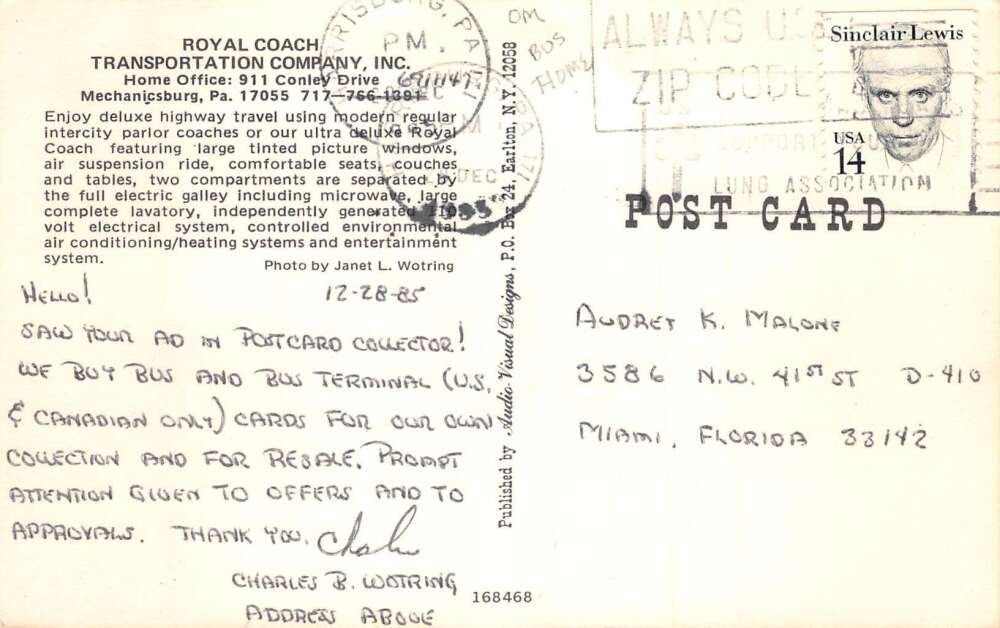 ROYAL COACH
TRANSPORTATION COMPANY, INC.
Home Office: 911 Conley Drive
Mechanicsburg, Pa. 17055 717-766-1391
Enjoy deluxe highway travel using modern regular
intercity parlor coaches or our ultra deluxe Royal
Coach featuring large tinted picture windows,
air suspension ride, comfortable seats, couches
and tables, two compartments are separated by
the full electric galley including microwave, large
complete lavatory, independently generated 110
volt electrical system, controlled environmental
air conditioning/heating systems and entertainment
system.
Photo by Janet L. Wotring
HELLO! 12-28-85
SAW YOUR AD IN POSTCARD COLLECTOR!
WE BUY BUS AND BUS TERMINAL (U.S.
& CANADIAN ONLY) CARDS FOR OUR OWN
COLLECTION AND FOR RESALE. PROMPT
ATTENTION GIVEN TO OFFERS AND TO
APPROVALS. THANK YOU,
CHARLES B. WOTRING
ADDRESS ABOVE
168468
Published by Audio-Visual Designs, P.O. Box 24, Earlton, N.Y. 12058
OM
BUS
HOME
PM
DEC
ALWAYS USE
ZIP CODE
SUPPORT YOUR
LUNG ASSOCIATION
Sinclair Lewis
USA
14
POST CARD
AUDREY K. MALONE
3586 N.W. 41ST ST D-410
MIAMI, FLORIDA 33142